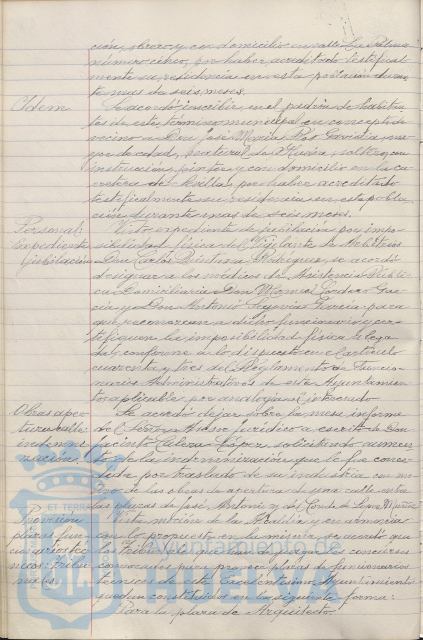 ción, obrero y con domicilio en calle La Palma
número cinco, por haber acreditado testifical
mente su residencia en esta población duran
te mas de seis meses.
Idem
Se acordó inscribir en el padrón de habitan
tes de este término municipal en concepto de
vecino a Don José María Ros García, ma
yor de edad, natural de Murcia, soltero, con
instrucción, pintor y con domicilio en la ca
rretera de Sevilla, por haber acreditado
testificalmente su residencia en esta pobla
ción durante mas de seis meses.
Personal:
Expediente
jubilación
Visto expediente de jubilación por impo
sibilidad física del Vigilante de Arbitrios
Don Carlos Rodríguez, se acordó
designar a los médicos de Asistencia Públi
ca Domiciliaria Don Manuel Gar
cía y Don Antonio Segovia García para
que reconozcan a dicho funcionario y cer
tifiquen la imposibilidad física alega
da y conforme a lo dispuesto en el artículo
cuarenta y tres del Reglamento de Funcio
narios Administrativos de este Ayuntamien
to aplicable por analogía al interesado
Obras aper
tura calle:
indemni
zación.
Se acordó dejar sobre la mesa informe
del Señor Asesor Jurídico a escrito de Don
Jacinto López, solicitando aumen
to de la indemnización que le fue conce
dida por traslado de su industria con mo
tivo de las obras de apertura de una calle entre
las plazas de José Antonio y del Conde de López Muñoz
Provisión
plazas fun
cionarios téc
nicos: tribu
nales.
Vista moción de la Alcaldía y en armonía
con lo propuesto en la misma, se acordó que
los tribunales que han de juzgar los concursos
convocados para proveer plazas de funcionarios
técnicos de este Excelentísimo Ayuntamiento
queden constituidos en la siguiente forma:
Para la plaza de Arquitecto.
ET TERRA
Ayuntamiento de